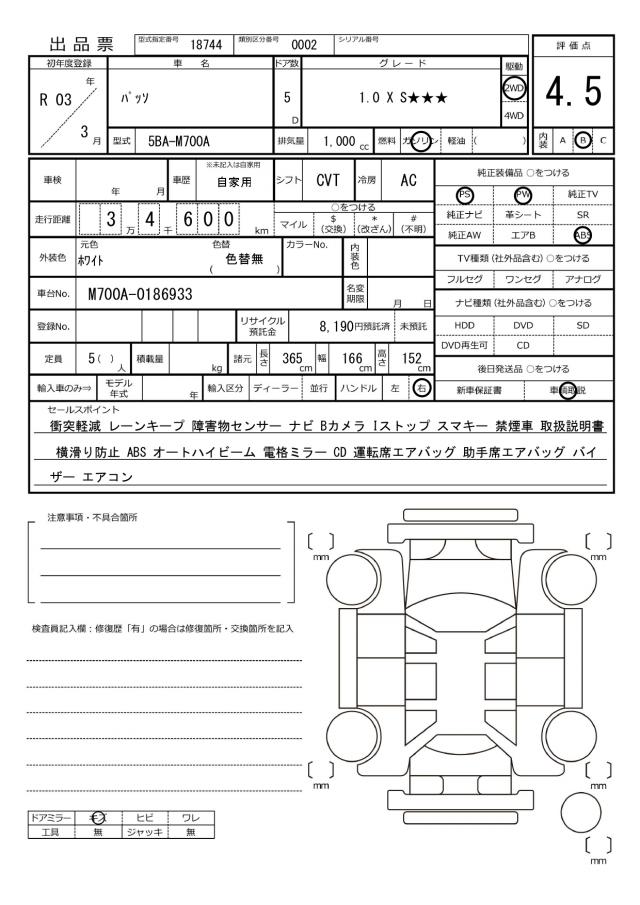 出品票 型式指定番号 18744 類別区分番号 0002 シリアル番号
評価点
4.5
初年度登録 車名 ドア数 グレード 駆動
R 03 年 3 月 パッソ 5 D 1.0 X S★★★ 2WD 4WD
型式 5BA-M700A 排気量 1,000 cc 燃料 ガソリン 軽油 ( ) 内装 A B C
車検 年 月 車歴 ※未記入は自家用 自家用 シフト CVT 冷房 AC
走行距離 3 万 4 千 6 0 0 km ○をつける
マイル $ (交換) * (改ざん) # (不明)
外装色 元色 ホワイト 色替 ( 色替無 ) カラーNo. 内装色
車台No. M700A-0186933 名変期限 月 日
登録No. リサイクル預託金 8,190円預託済 未預託
定員 5( ) 人 積載量 kg 諸元 長さ 365 cm 幅 166 cm 高さ 152 cm
輸入車のみ⇒ モデル年式 年 輸入区分 ディーラー 並行 ハンドル 左 右
純正装備品 ○をつける
PS PW 純正TV
純正ナビ 革シート SR
純正AW エアB ABS
TV種類(社外品含む)○をつける
フルセグ ワンセグ アナログ
ナビ種類(社外品含む)○をつける
HDD DVD SD
DVD再生可 CD
後日発送品 ○をつける
新車保証書 車輌取説
セールスポイント
衝突軽減 レーンキープ 障害物センサー ナビ Bカメラ Iストップ スマキー 禁煙車 取扱説明書
横滑り防止 ABS オートハイビーム 電格ミラー CD 運転席エアバッグ 助手席エアバッグ バイ
ザー エアコン
注意事項・不具合箇所
検査員記入欄:修復歴「有」の場合は修復箇所・交換箇所を記入
ドアミラー キズ ヒビ ワレ
工具 無 ジャッキ 無
[ ] mm
[ ] mm
[ ] mm
[ ] mm
[ ] mm